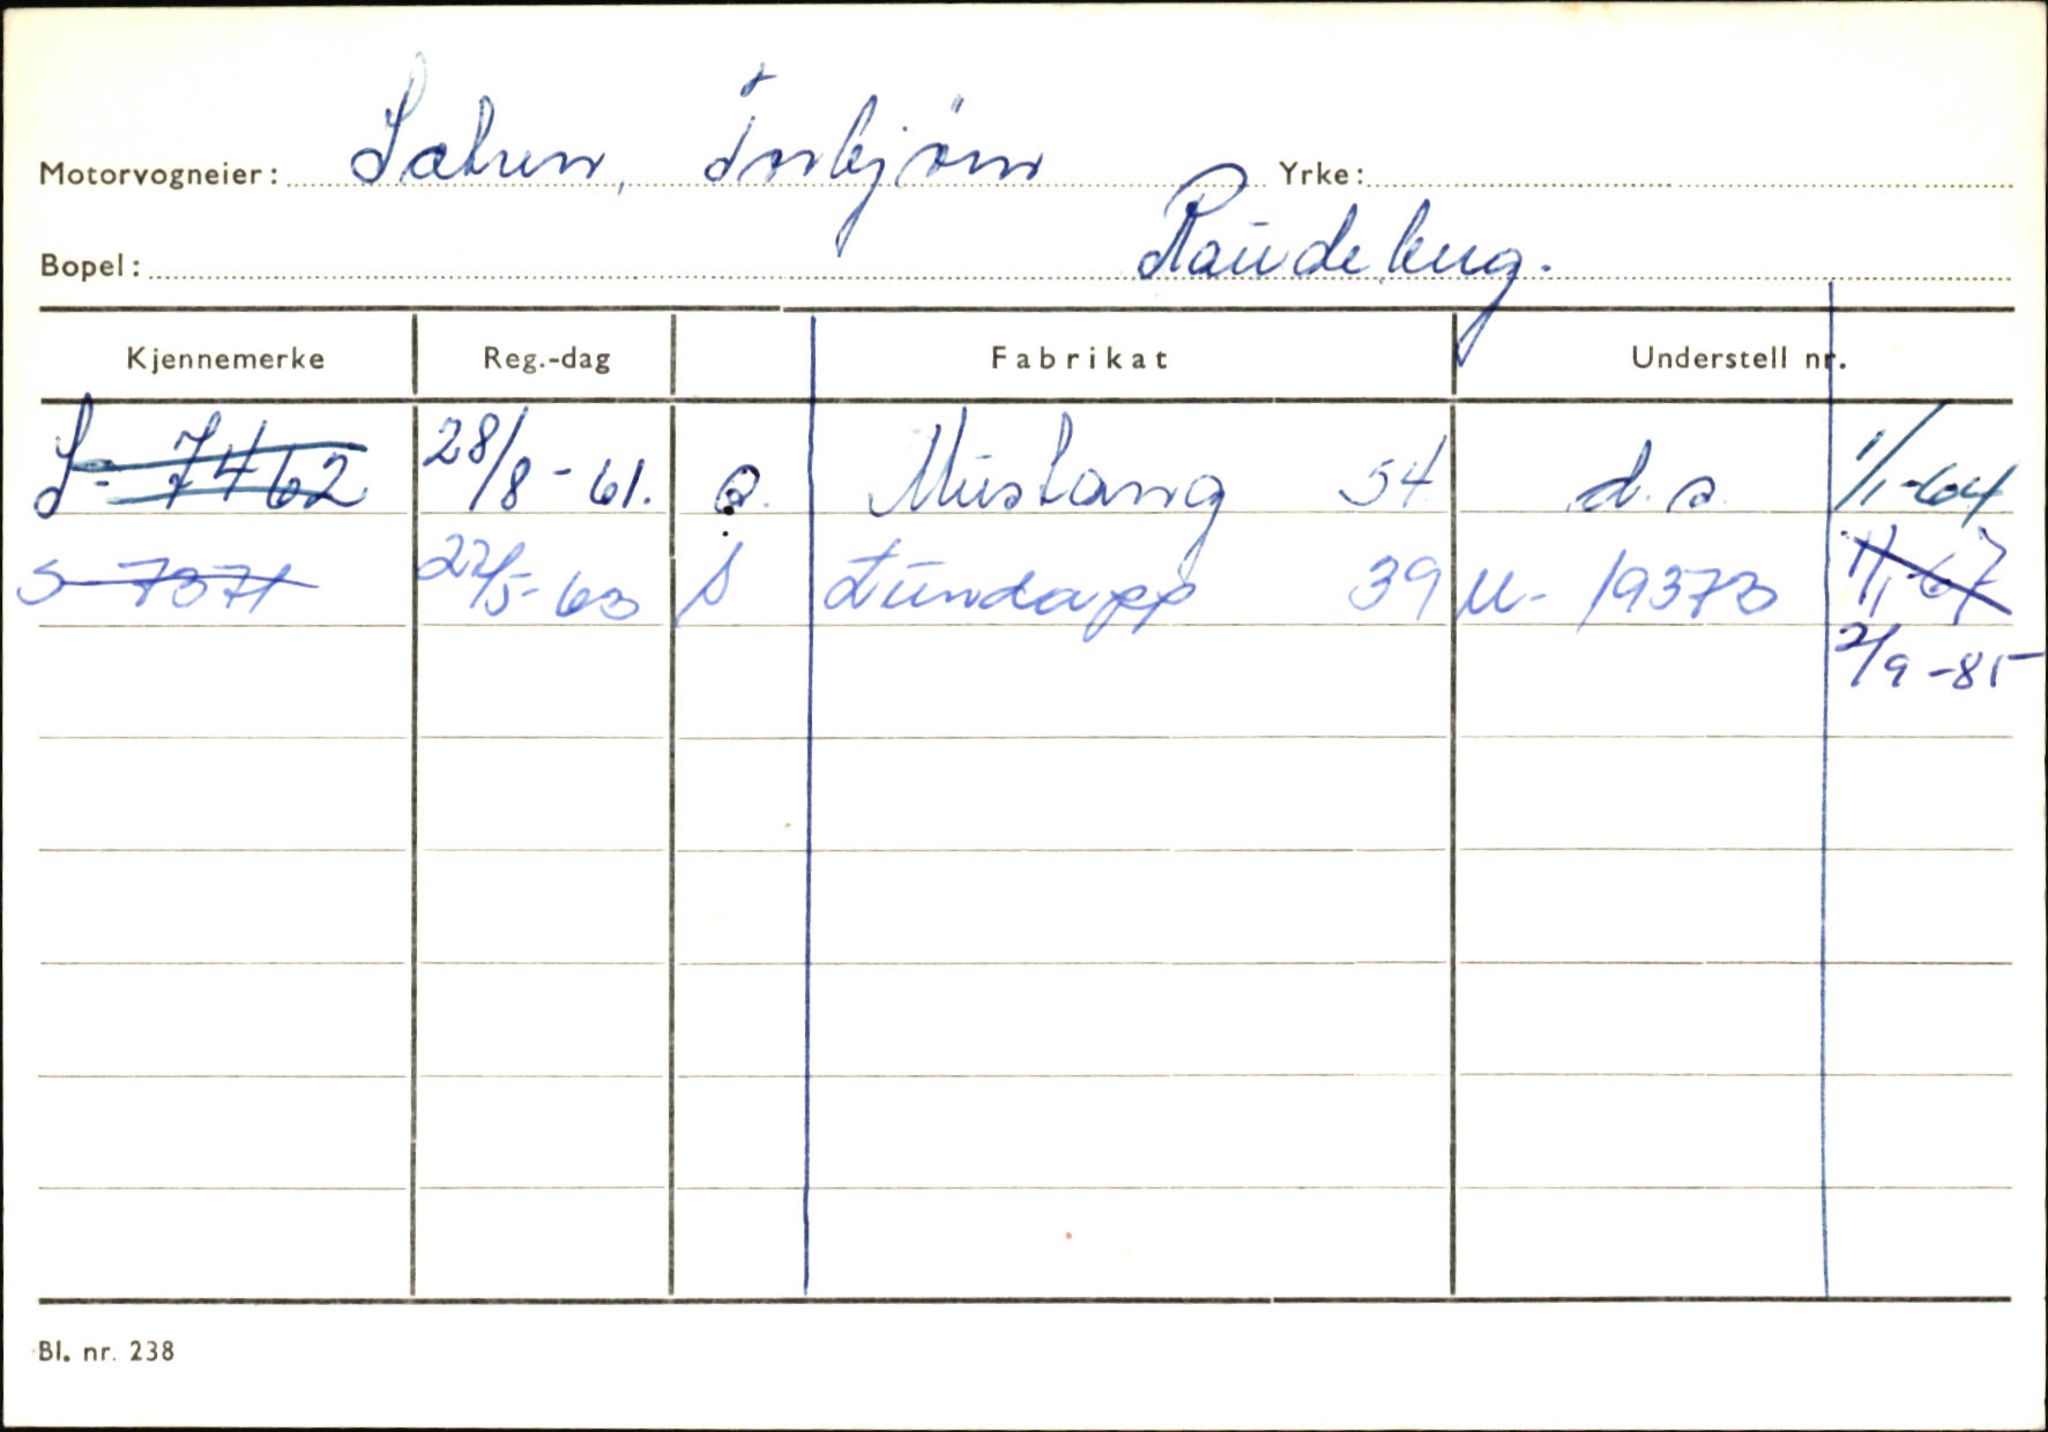 Motorvogneier: Sætren, Torbjørn Yrke:
Bopel: Raudeberg.
Kjennemerke Reg.-dag Fabrikat Understell nr.
S- 7462 28/8-61. o. Mustang 54 d.s. 1/1-64
S 7371 22/5-63 S Zundapp 39 M- 19373 1/1-67
2/9-85
Bl. nr. 238